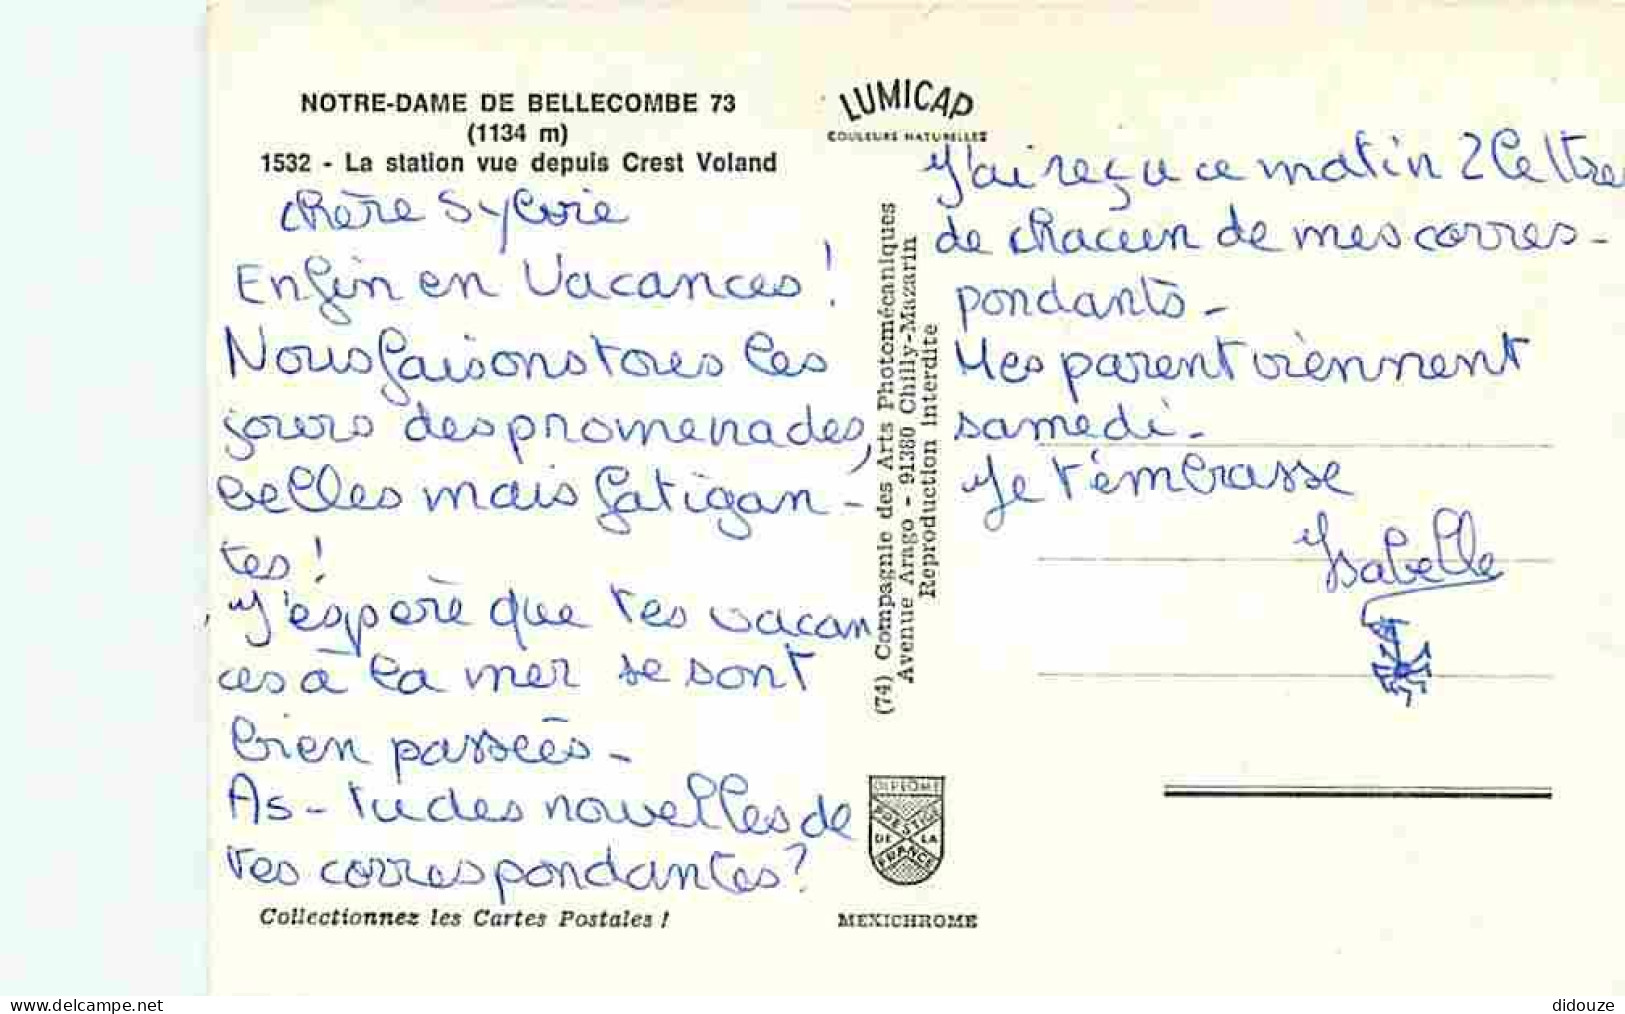 NOTRE-DAME DE BELLECOMBE 73
(1134 m)
1532 - La station vue depuis Crest Voland
chère Sylvie
Enfin en Vacances !
Nous faisons tous les
jours des promenades,
belles mais fatigan-
tes !
J'espère que tes vacan
ces à la mer se sont
bien passées -
As-tu des nouvelles de
tes correspondantes ?
Collectionnez les Cartes Postales !
LUMICAP
COULEURS NATURELLES
(74) Compagnie des Arts Photomécaniques
Avenue Arago - 91380 Chilly-Mazarin
Reproduction interdite
DIPLOME
PRESTIGE
DE LA
FRANCE
MEXICHROME
J'ai reçu ce matin 2 lettres
de chacun de mes corres-
pondants -
Mes parent viennent
samedi -
Je t'embrasse
Isabelle
www.delcampe.net
didouze